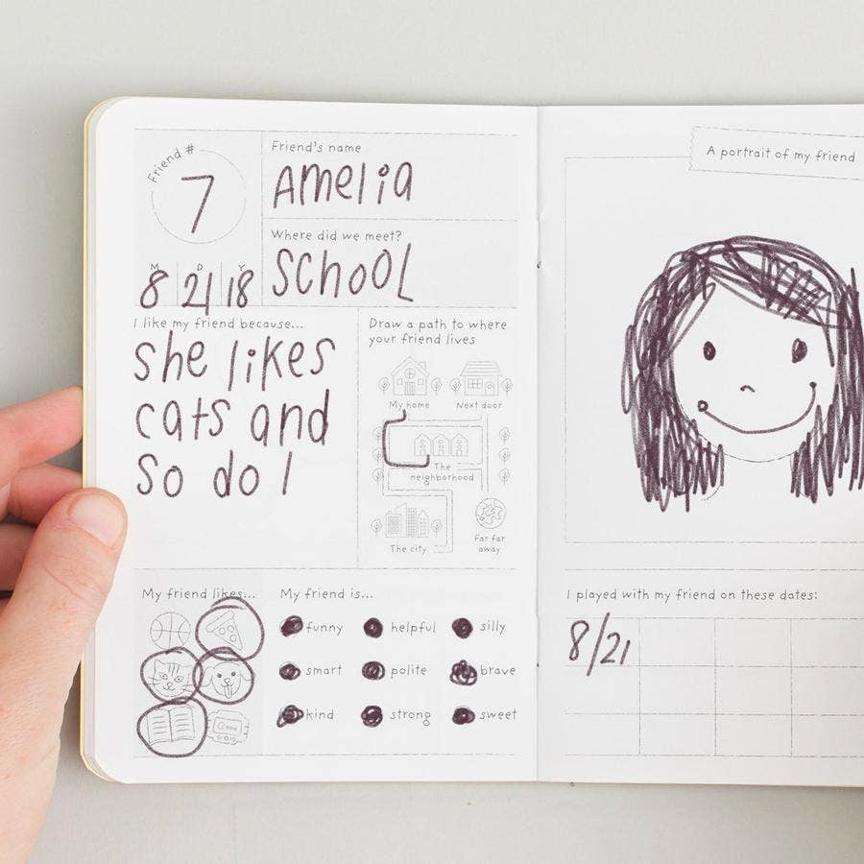 Friend #
7
M D Y
8 21 18
Friend's name
Amelia
Where did we meet?
SCHOOL
I like my friend because...
She likes
cats and
so do I
Draw a path to where
your friend lives
My home
Next door
The
neighborhood
The city
Far far
away
My friend likes...
My friend is...
funny
helpful
silly
smart
polite
brave
kind
strong
sweet
A portrait of my friend
I played with my friend on these dates:
8/21